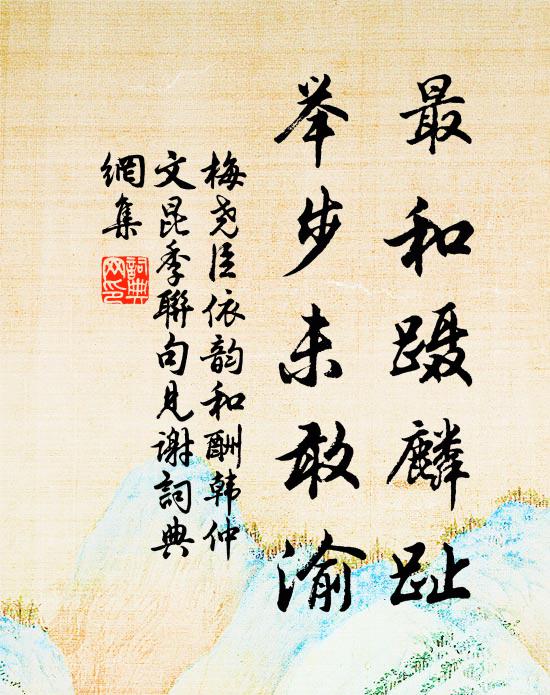 最和蹑麟趾
举步未敢渝
梅尧臣依韵和酬韩仲
文昆季聯句见谢詞典
網集
詞典網印